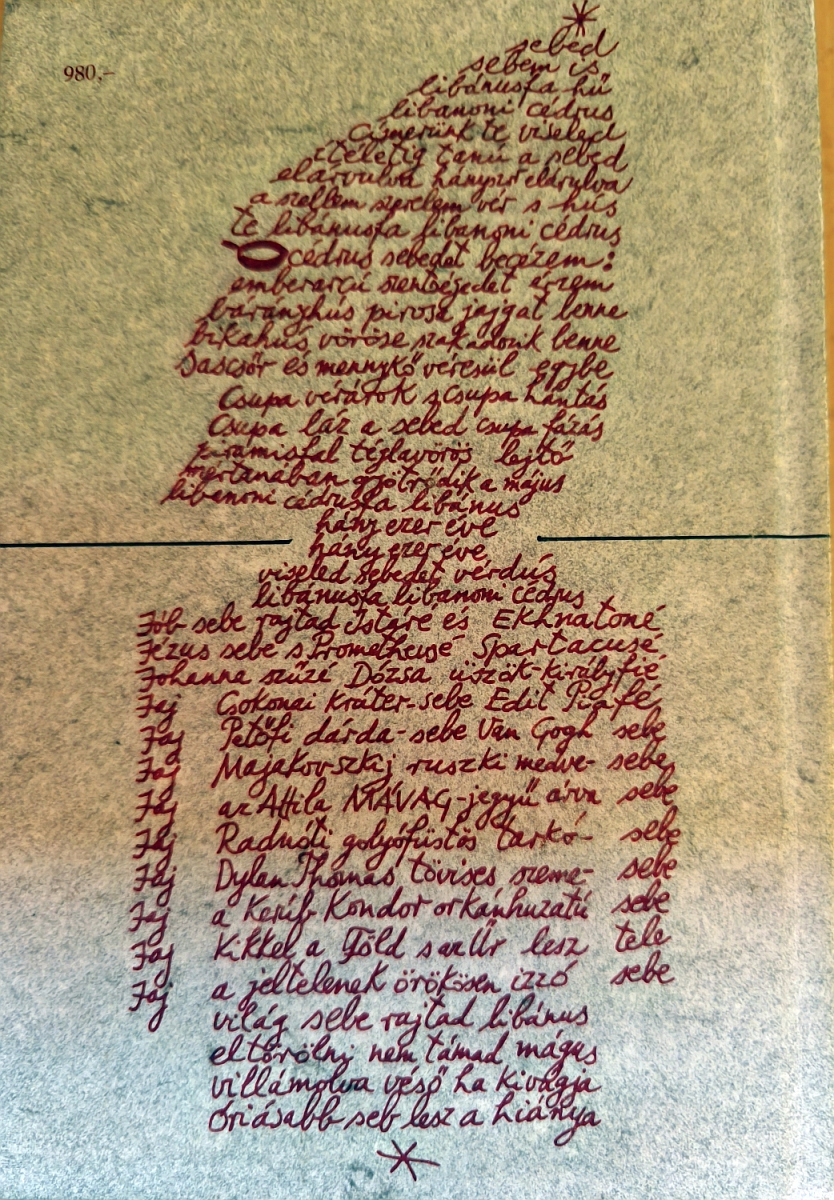 980,–
*
sebed
sebem is
libánusfa hű
libanoni cédrus
címerünk te viseled
ítéletig tanú a sebed
elárvulva hányszr elárulva
a szellem szerelem vér s hús
te libánusfa libanoni cédrus
Ó cédrus sebedet becézem:
emberarcú szentségedet érzem
bárányhús pirosa jajgat benne
bikahús vöröse szakadozik benne
Sascsőr és mennykő véresül egybe
Csupa vérárok s csupa hántás
Csupa láz a sebed csupa fázás
piramisfal téglavörös lejtő
gyötrődik a május
libanoni cédrusfa libánus
hány ezer éve
hány ezer éve
viseled sebedet vérdús
libánusfa libanoni cédrus
Jób sebe rajtad Istáré és Ekhnatoné
Jézus sebe s Prometheusé Spartacusé
Johanna szűzé Dózsa üszök-királyfié
Jaj Csokonai kráter-sebe Edit Piafé
Jaj Petőfi dárda-sebe Van Gogh sebe
Jaj Majakovszkij ruszki medve- sebe
Jaj az Attila MÁVAG-jegyű árva sebe
Jaj Radnóti golyófüstös tarkó- sebe
Jaj Dylan Thomas tövises szeme- sebe
Jaj a Kerub Kondor orkánhuzatú sebe
Jaj Kikkel a Föld s az Űr lesz tele
Jaj a jeltelenek örökösen izzó sebe
világ sebe rajtad libánus
eltörölni nem támad mágus
villámolva véső ha kivágja
óriásabb seb lesz a hiánya
*